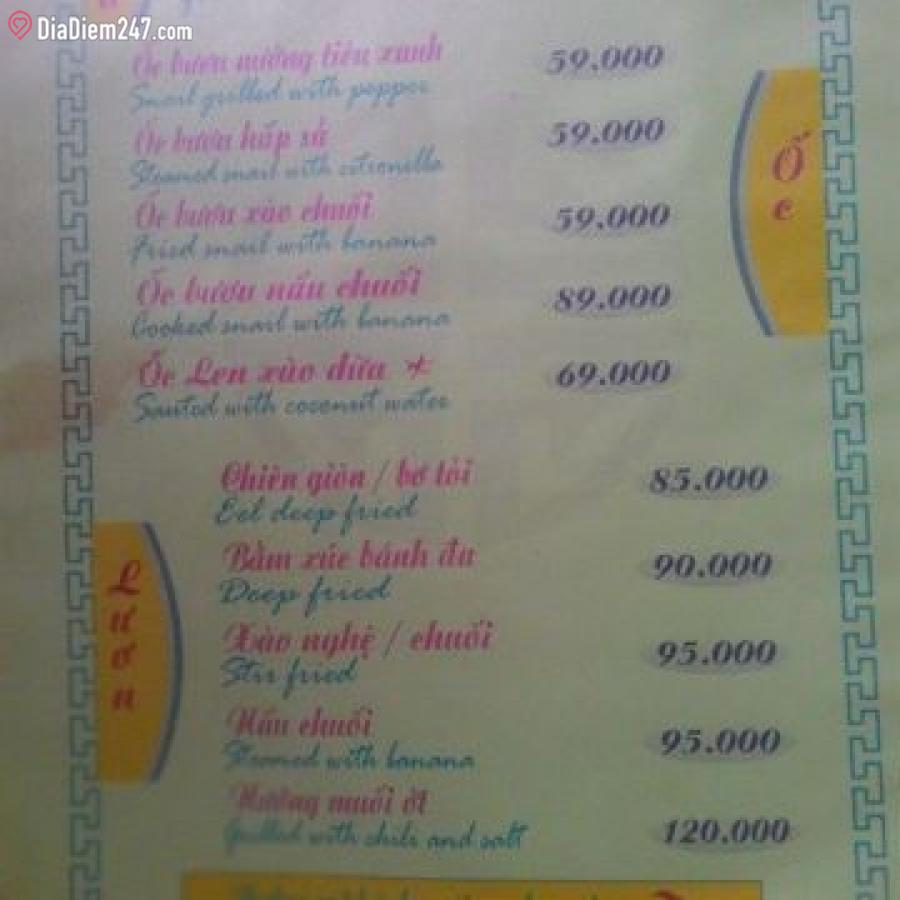 DiaDiem247.com
Ốc bươu nướng tiêu xanh 59.000
Snail grilled with pepper
Ốc bươu hấp sả 59.000
Steamed snail with citronella
Ốc bươu xào chuối 59.000
Fried snail with banana
Ốc bươu nấu chuối 89.000
Cooked snail with banana
Ốc Len xào dừa * 69.000
Sauted with coconut water
Ốc
Chiên giòn / bơ tỏi 85.000
Eel deep fried
Bằm xúc bánh đa 90.000
Deep fried
Xào nghệ / chuối 95.000
Stir fried
Nấu chuối 95.000
Steamed with banana
Nướng muối ớt 120.000
Grilled with chili and salt
Lươn